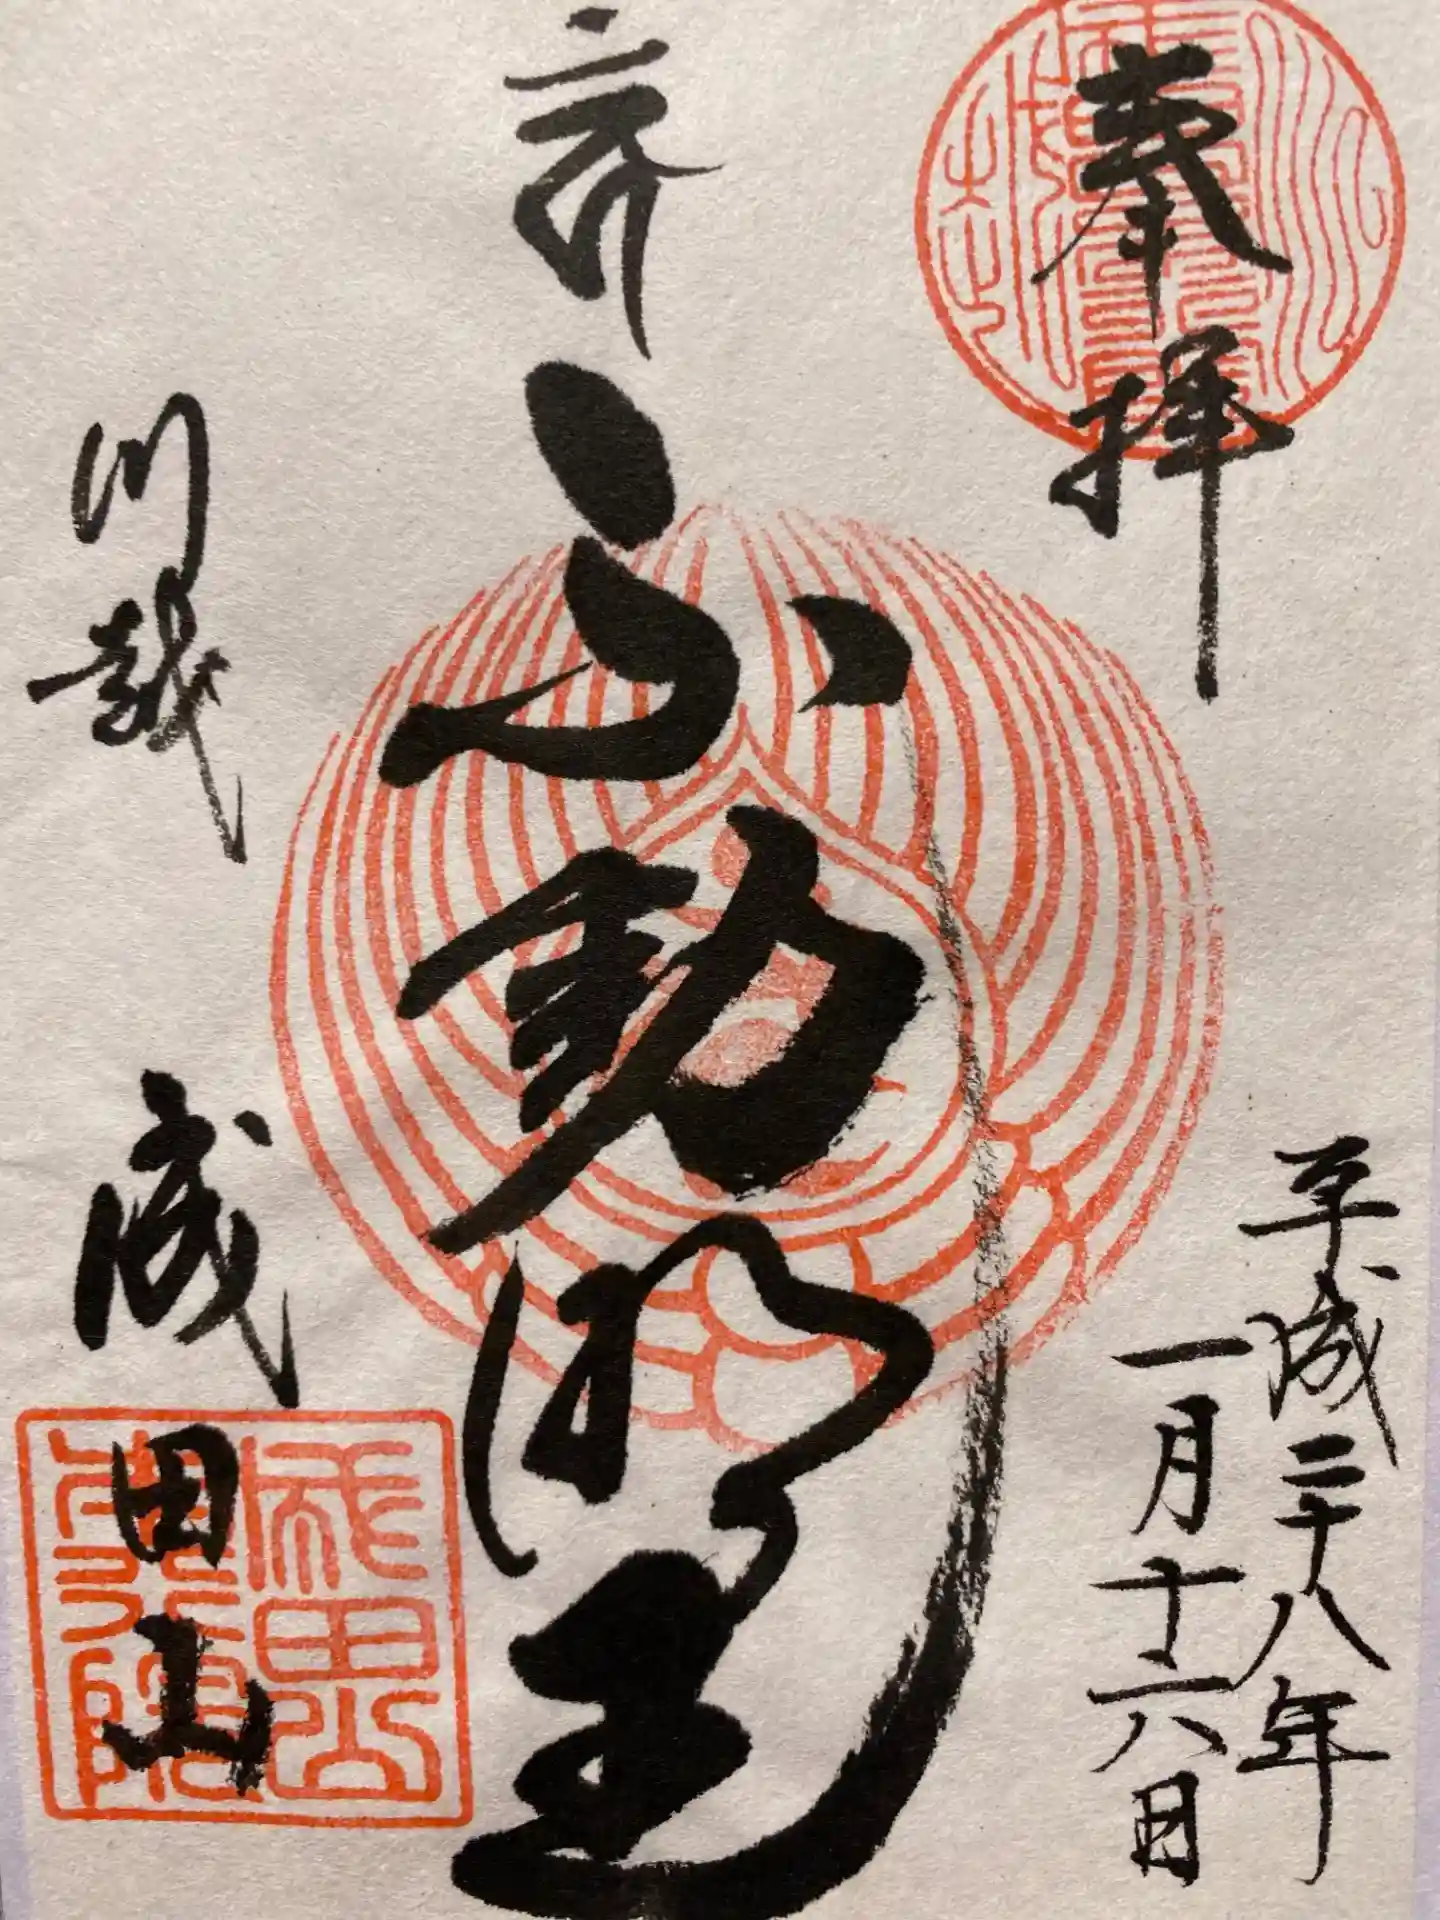 奉拝
平成二十八年
一月十六日
不動明王
川越
成田山
成田山